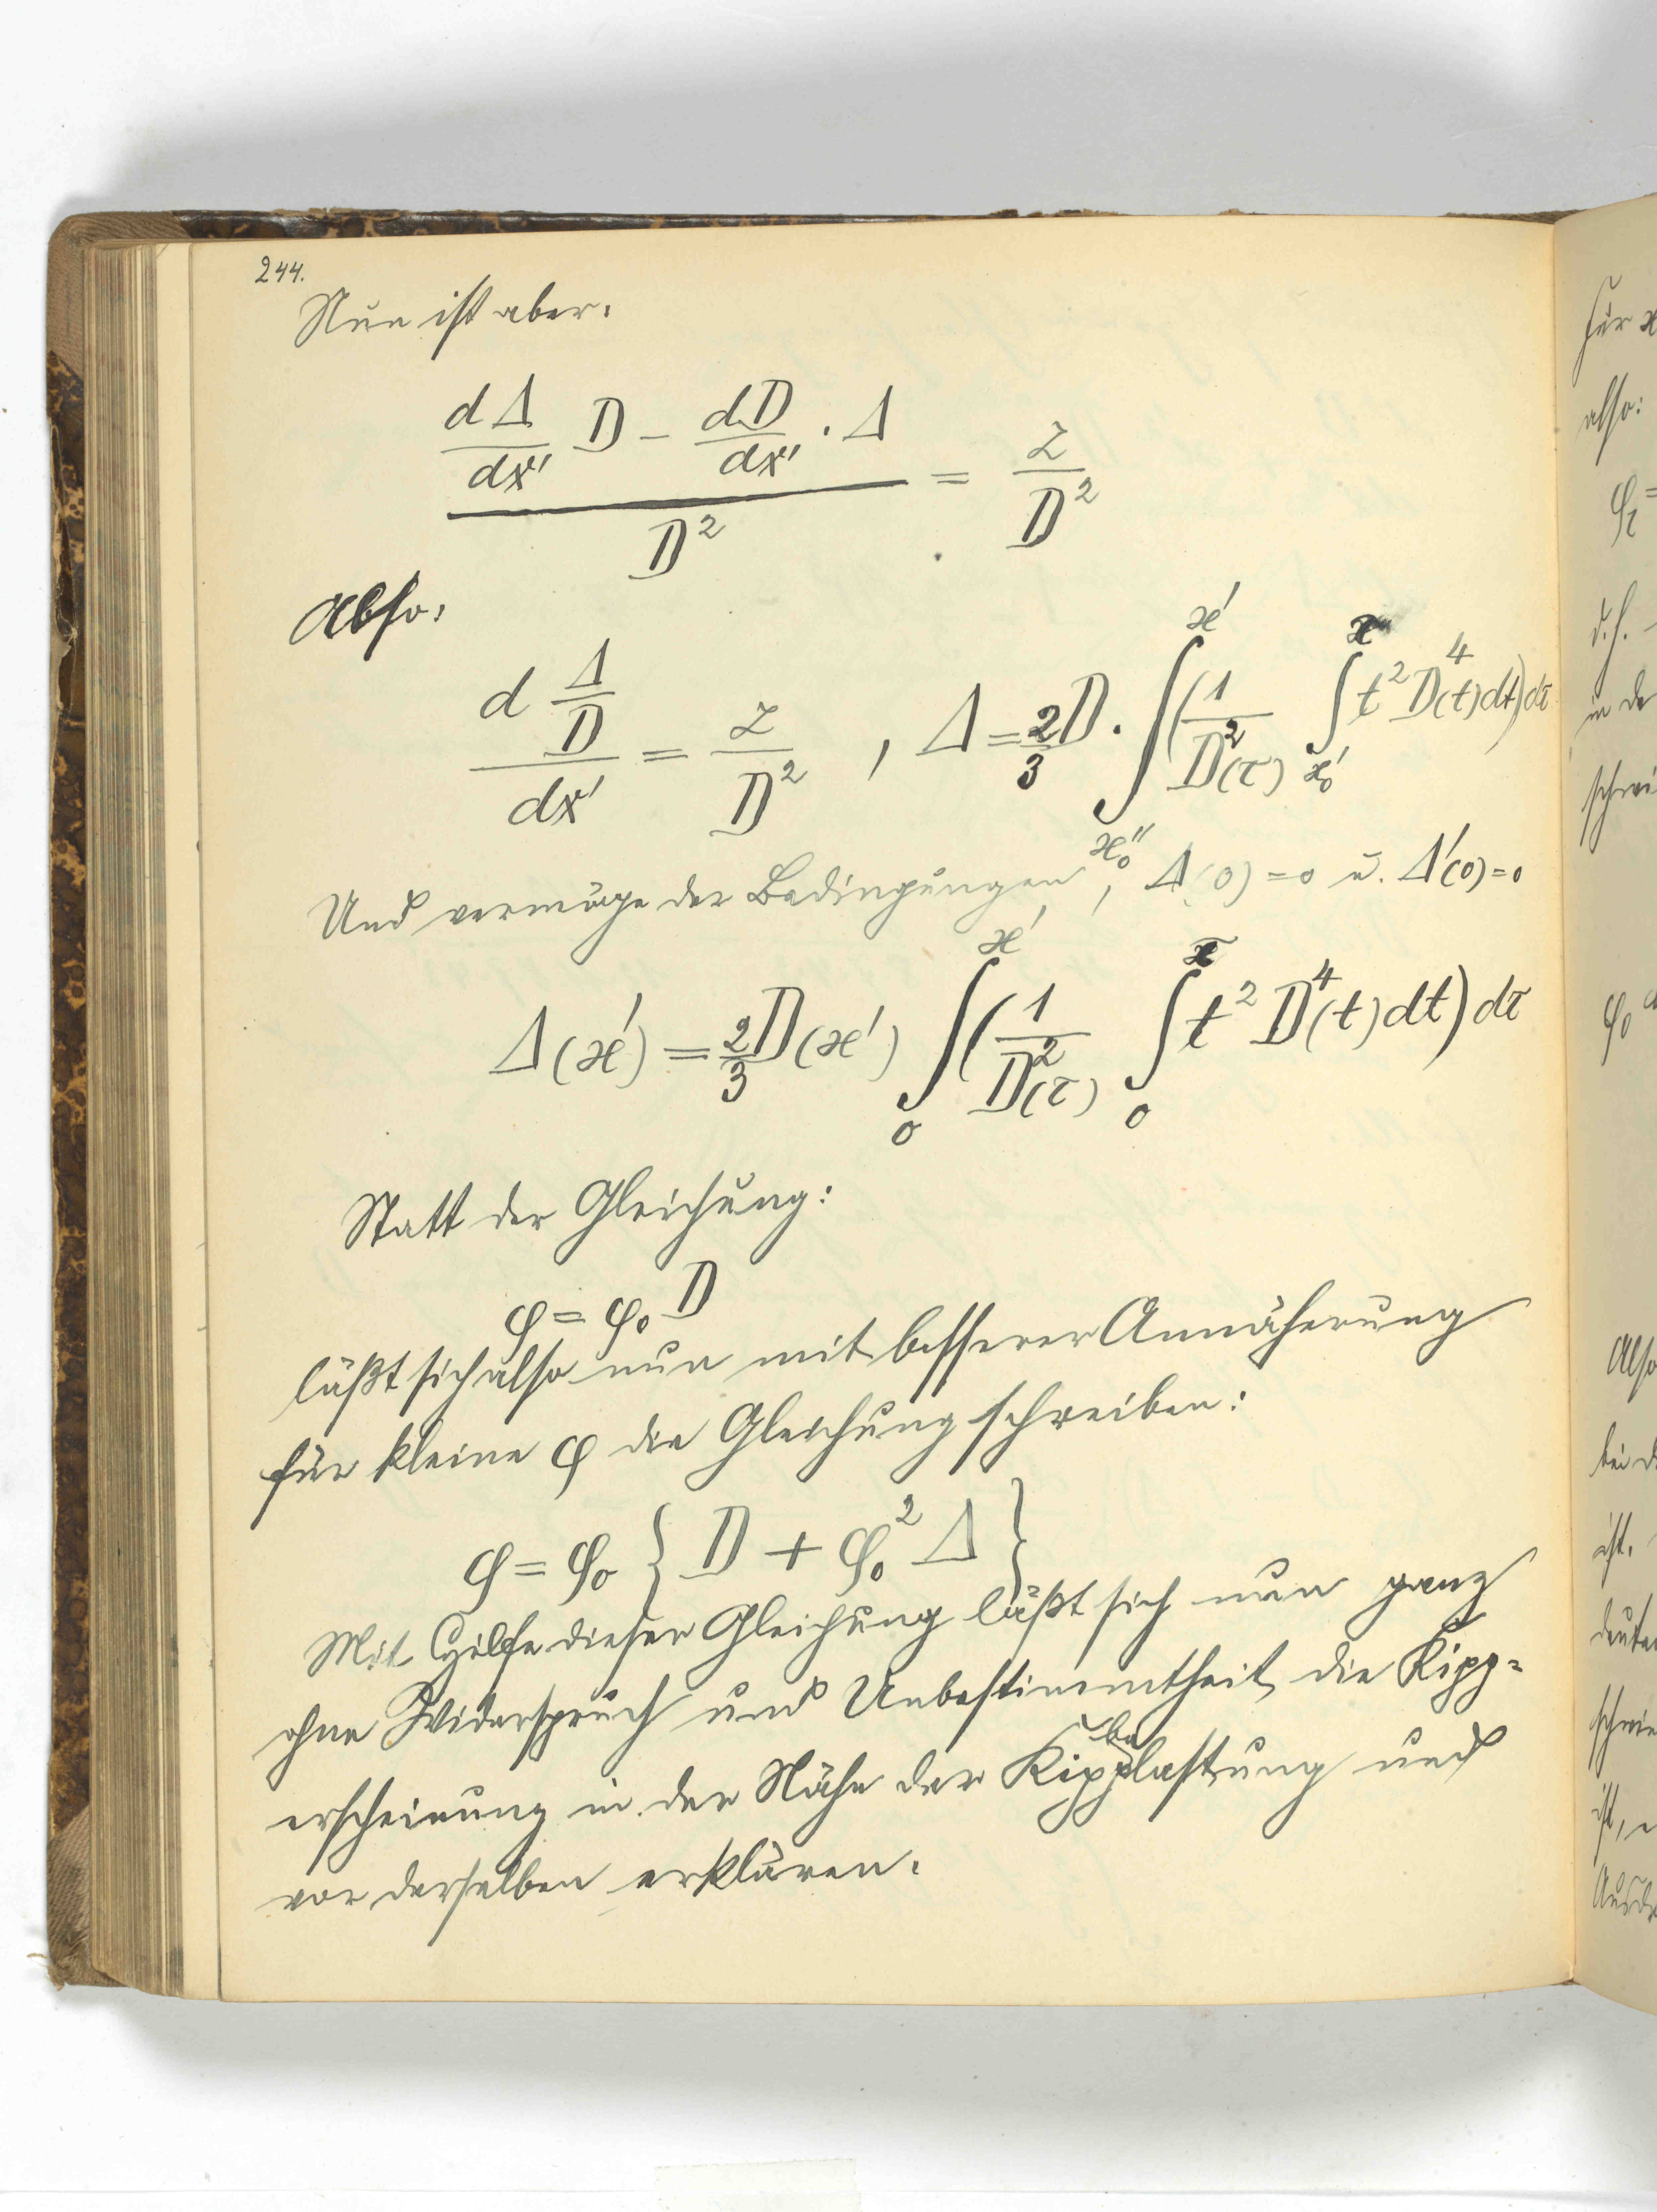 244.
Nun ist aber:
(dΔ/dx' D − dD/dx' · Δ) / D² = Z/D²
Also:
d(Δ/D)/dx' = Z/D² , Δ = 2/3 D · ∫_{x₀''}^{x'} (1/D²(τ) ∫_{x₀'}^{τ} t² D⁴(t) dt) dτ
Und vermöge der Bedingungen, Δ(0) = 0 u. Δ'(0) = 0
Δ(x') = 2/3 D(x') ∫_0^{x'} (1/D²(τ) ∫_0^{τ} t² D⁴(t) dt) dτ
Statt der Gleichung:
φ = φ₀ D
läßt sich also nun mit besserer Annäherung
für kleine φ die Gleichung schreiben:
φ = φ₀ { D + φ₀² Δ }
Mit Hilfe dieser Gleichung läßt sich nun ganz
ohne Widerspruch und Unbestimmtheit die Kipp-
erscheinung in der Nähe der Kippbelastung und
vor derselben erklären.
für x
also:
φ_τ =
d. h.
in de
schrei
φ₀
Also
bei d
ist.
deuten
schrei
ist,
Ausdr